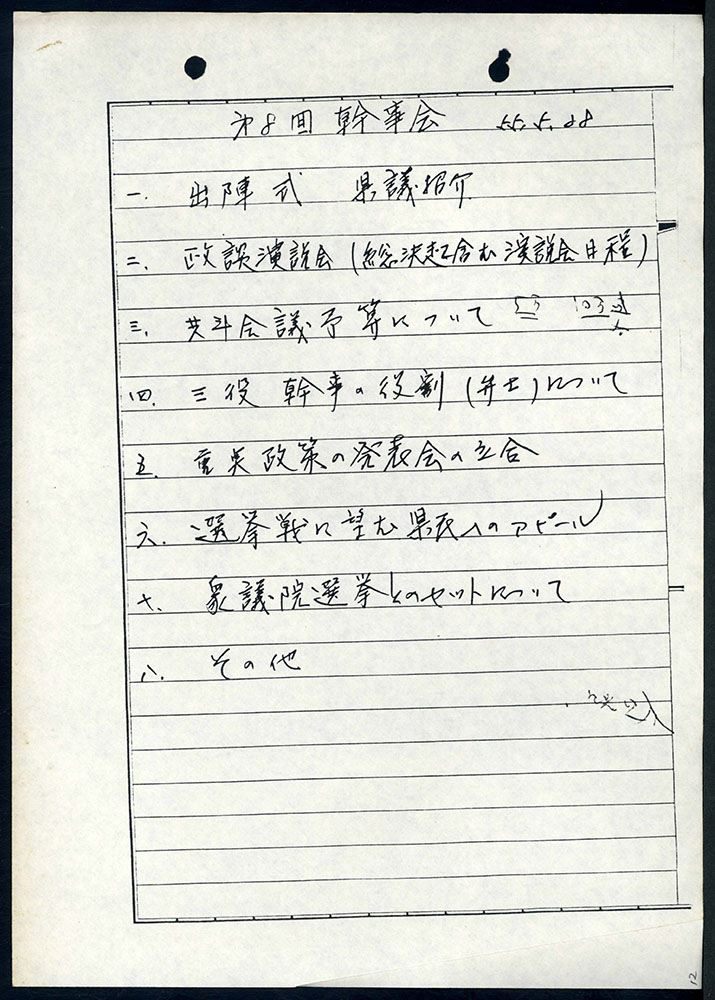 第8回 幹事会 55.5.28
一. 出陣式 県議紹介
二. 政談演説会(総決起含む演説会日程)
三. 共斗会議予算について
四. 三役 幹事の役割(弁士)について
五. 重点政策の発表会の立合
六. 選挙戦に望む県民へのアピール
七. 衆議院選挙とのセットについて
八. その他
12